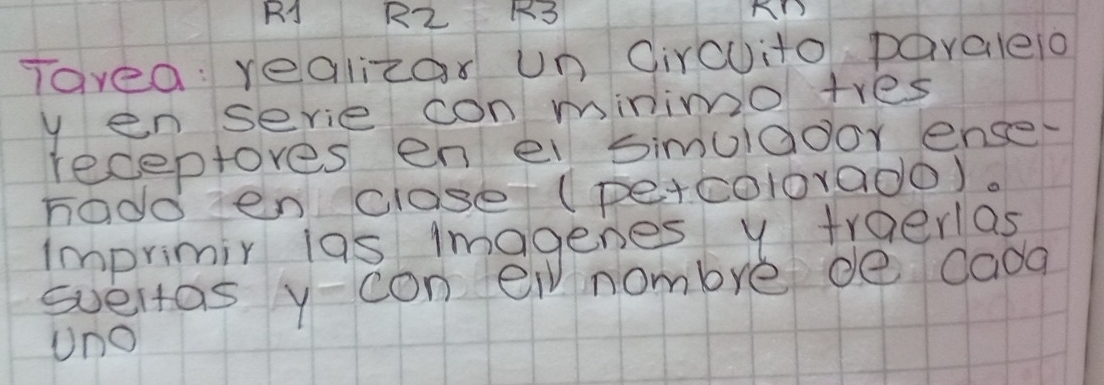 R1 R2 R3 Rn
Tarea: realizar un circuito paralelo
y en serie con minimo tres
receptores en el simulador ense-
ñado en clase (petcolorado).
Imprimir las imagenes y traerlas
sueltas y con el nombre de cada
uno